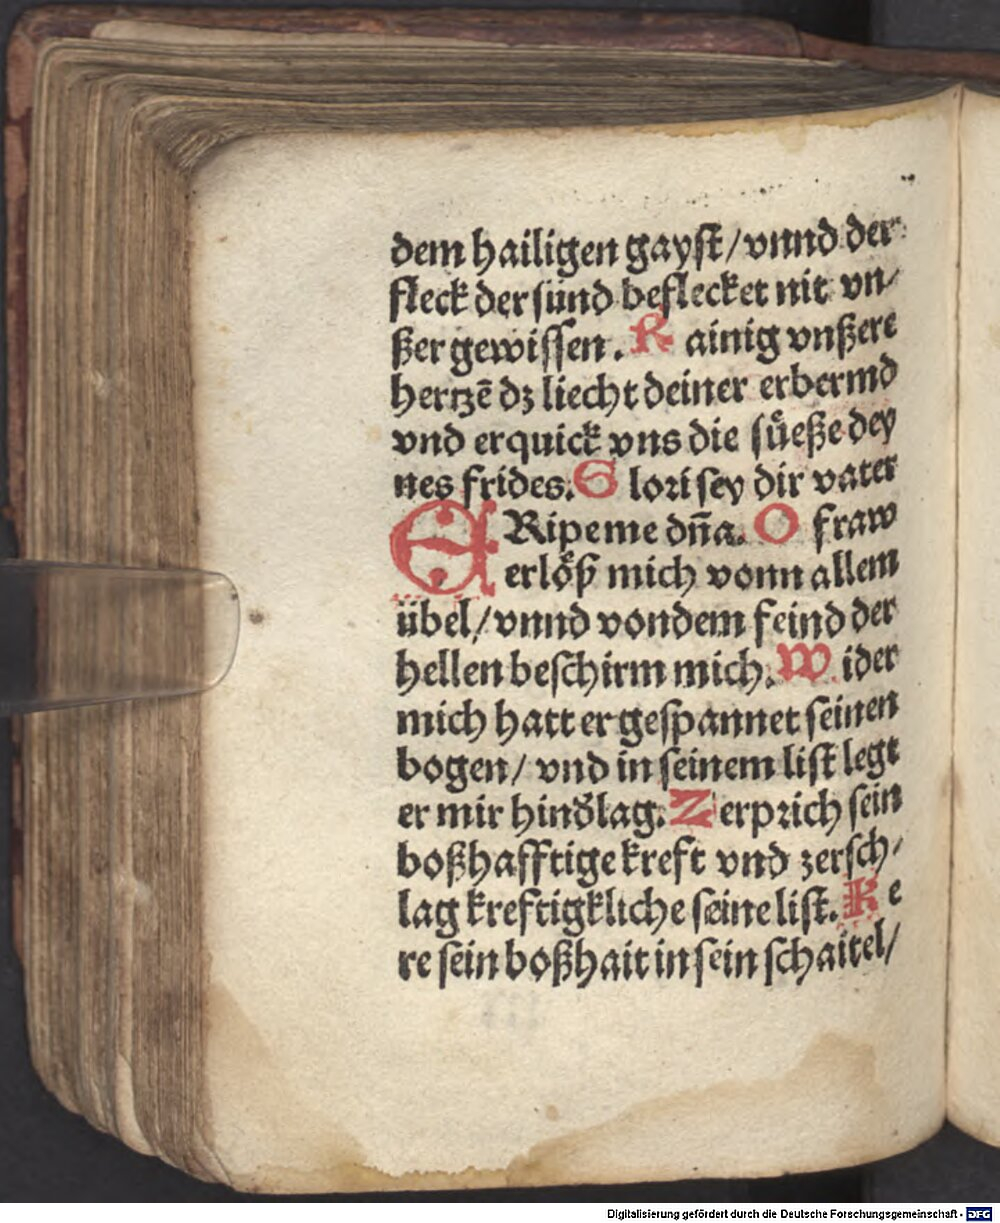 dem hailigen gayst/vnnd der
fleck der sünd beflecket nit vn/
ßer gewissen. Rainig vnßere
hertzē dz liecht deiner erbermd
vnd erquick vns die süeße dey
nes frides. Glori sey dir vater
ERipe me dña. O fraw
erlöß mich vonn allem
übel/vnnd von dem feind der
hellen beschirm mich. Wider
mich hatt er gespannet seinen
bogen/ vnd in seinem list legt
er mir hind̉lag. Zerprich sein
boßhafftige kreft vnd zersch/
lag kreftigkliche seine list. Ke
re sein boßhait in sein schaitel/
Digitalisierung gefördert durch die Deutsche Forschungsgemeinschaft - DFG